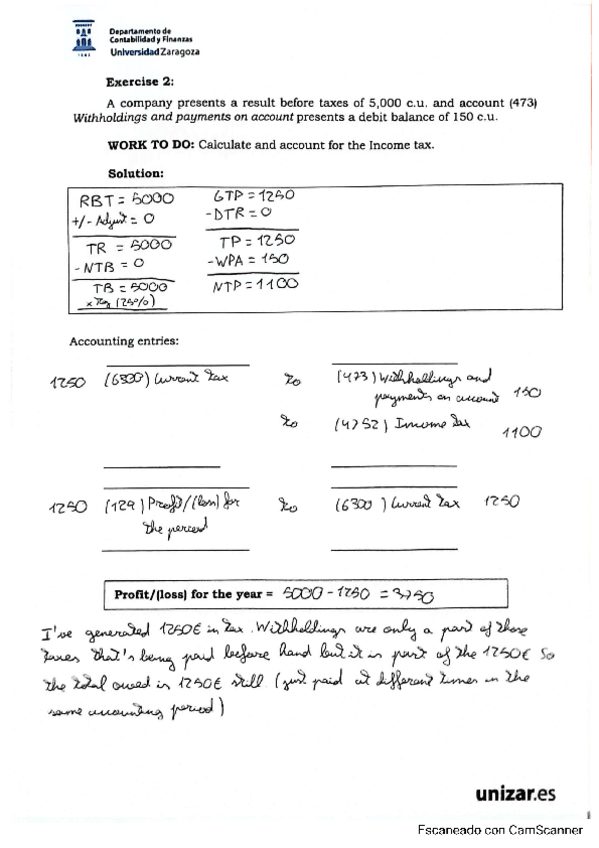 Departamento de
Contabilidad y Finanzas
Universidad Zaragoza
1542
Exercise 2:
A company presents a result before taxes of 5,000 c.u. and account (473)
Withholdings and payments on account presents a debit balance of 150 c.u.
WORK TO DO: Calculate and account for the Income tax.
Solution:
RBT = 5000
+/- Adjust = 0
TR = 5000
- NTB = 0
TB = 5000
x (25%)
GTP = 1250
- DTR = 0
TP = 1250
- WPA = 150
NTP = 1100
Accounting entries:
1250 (6300) Current tax to (473) Withholdings and
payments on account 150
to (4752) Income tax
1100
1250 (129) Profit/(loss) for to (6300) Current tax 1250
the period
Profit/(loss) for the year = 5000 - 1250 = 3750
I've generated 1250€ in tax. Withholdings are only a part of those
taxes that's being paid before hand but it is part of the 1250€ so
the total owed is 1250€ still (just paid at different times in the
same accounting period)
unizar.es
Escaneado con CamScanner